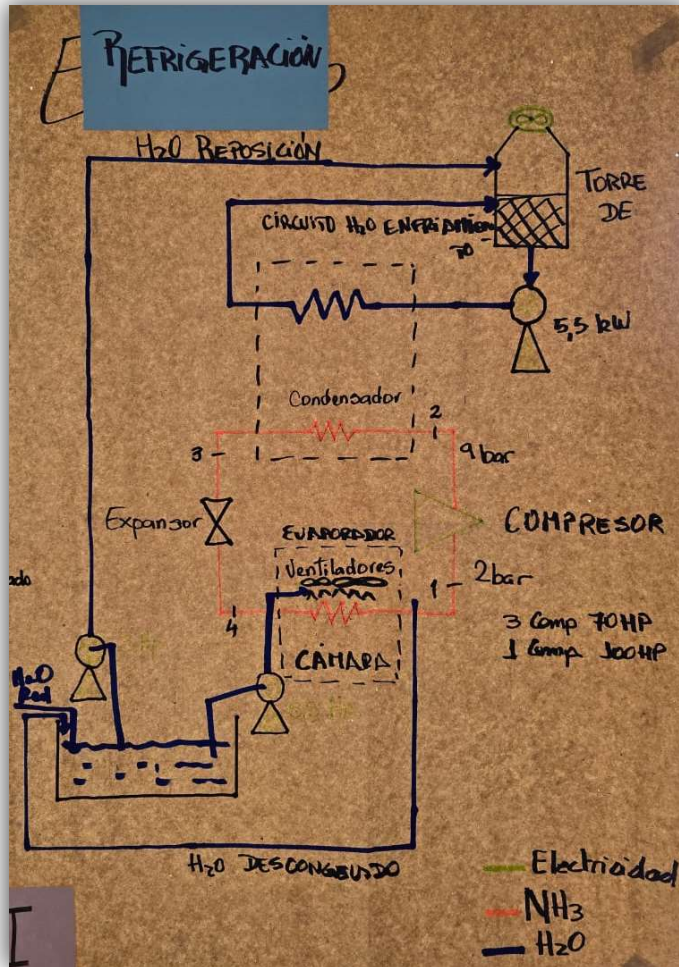 REFRIGERACIÓN
H2O REPOSICIÓN
TORRE
DE
CIRCUITO H2O ENFRIAMIEN
TO
5,5 kW
Condensador
2
3
9 bar
Expansor
COMPRESOR
EVAPORADOR
Ventiladores
1
2bar
4
CÁMARA
3 Comp 70HP
1 Comp 100HP
ado
H2O
Red
H2O DESCONGELADO
Electricidad
NH3
H2O
I